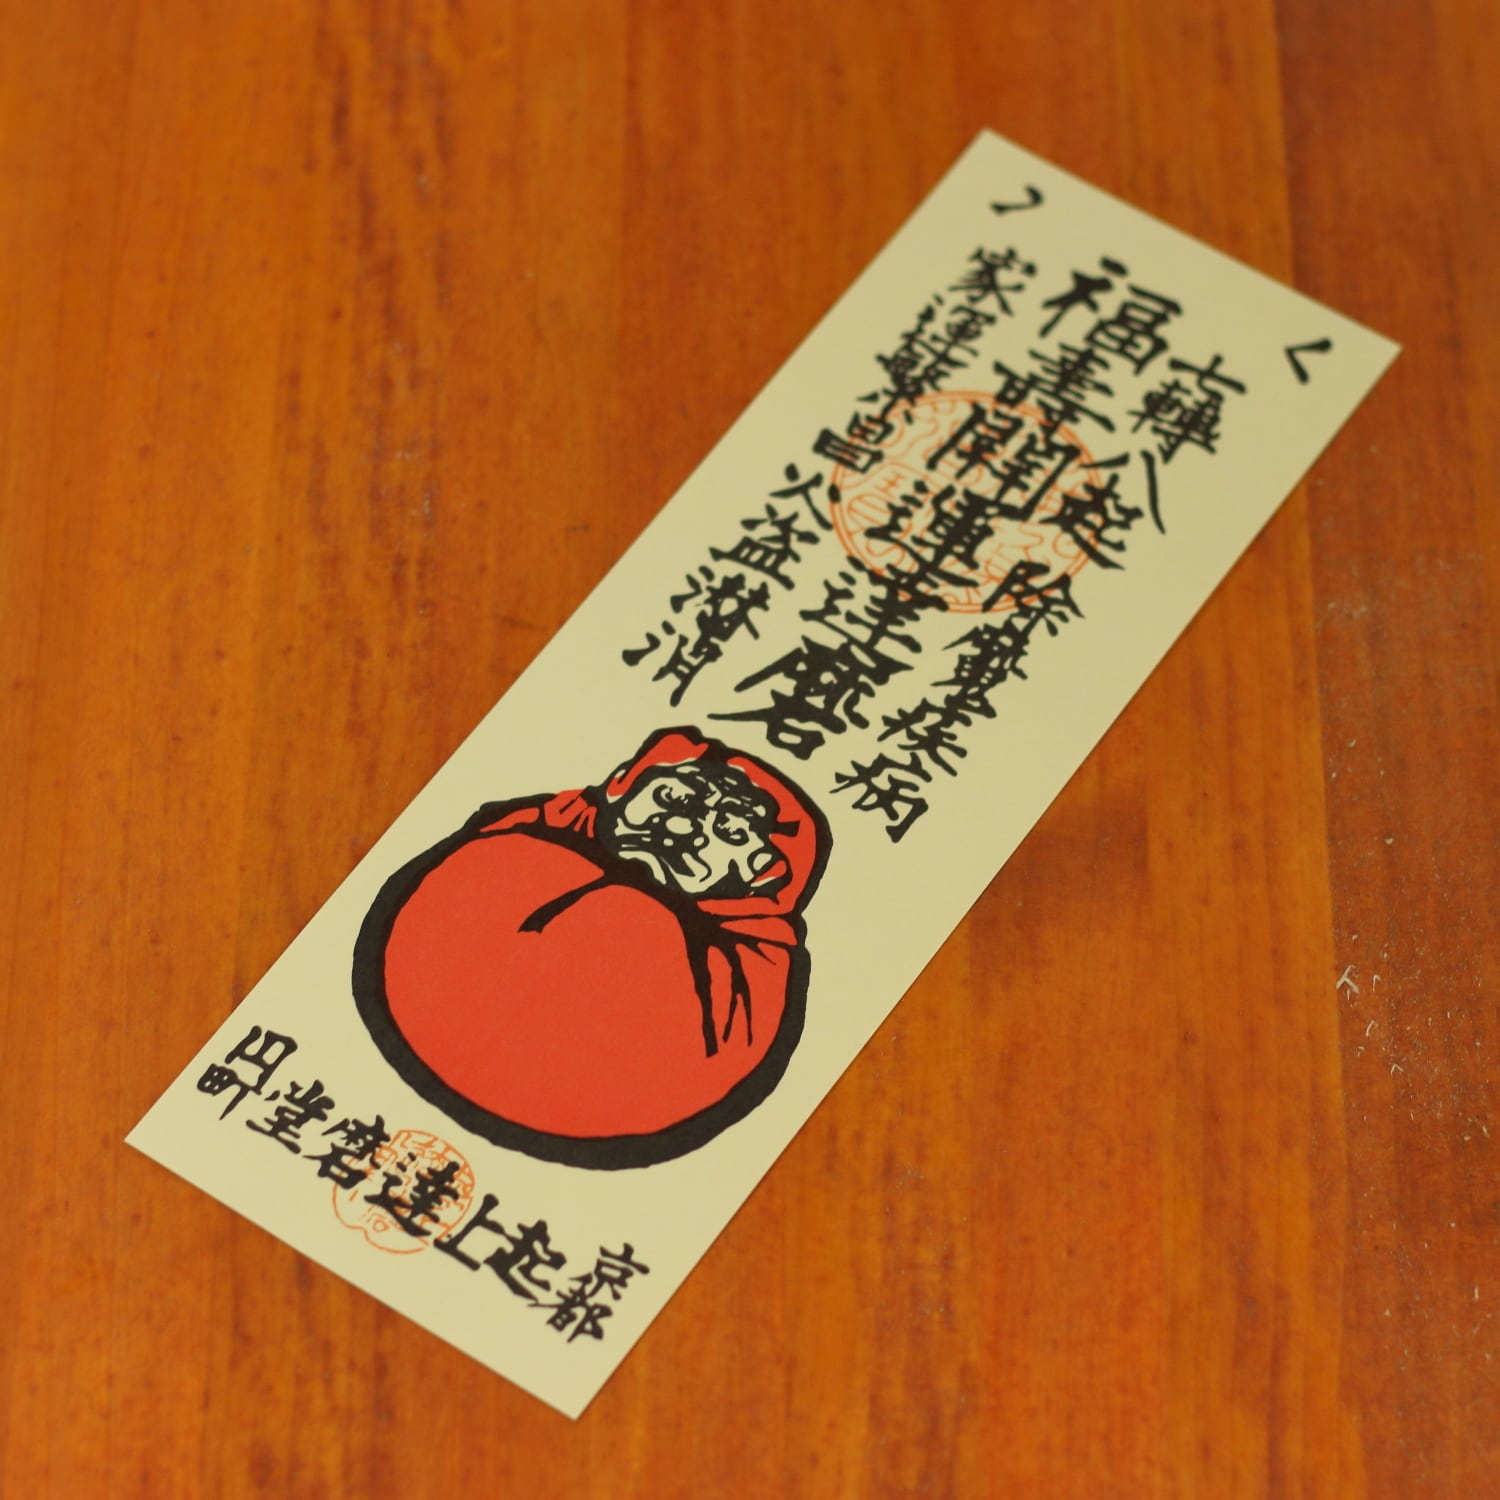 七轉八起 除魔疾病
福壽開運達磨
家運繁昌 火盗潜消
京都
起上達磨堂
円町